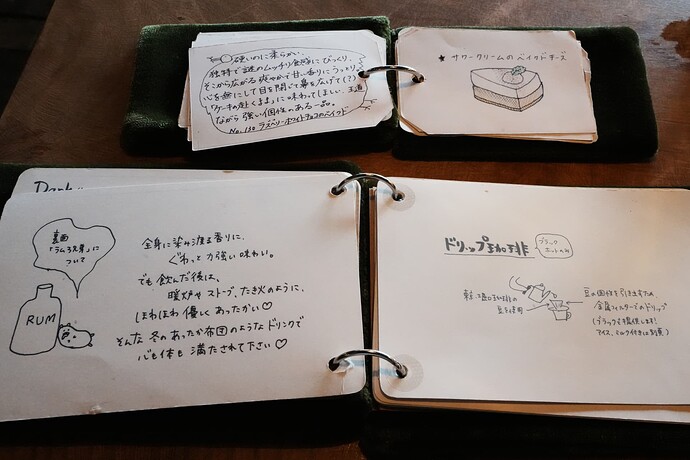 強いのに柔らかい。
独特で謎のムッチリ食感にびっくり。
そこから広がる爽やかで甘い香りにうっとり
心を無にして目を閉じて鼻を広げて(?)
「ケーキの赴くまま」に味わってほしい、王道
ながら強い個性のある一品。
No.130 ラズベリーホワイトチョコのベイクド
★ サワークリームのベイクドチーズ
Dark
裏面
「ラム3兄弟」に
ついて
RUM
全身に染み渡る香りに、
ぐわっと力強い味わい。
でも飲んだ後は、
暖炉やストーブ、たき火のように、
ほわほわ優しくあったかい♡
そんな 冬のあったか布団のようなドリンクで
心も体も 満たされて下さい♡
ドリップ珈琲
ブラック
ホットのみ
豆を使用
豆の個性を引き出すため
金属フィルターでのドリップ
(ブラックで提供します!
アイス、ミルク付きは別頁)